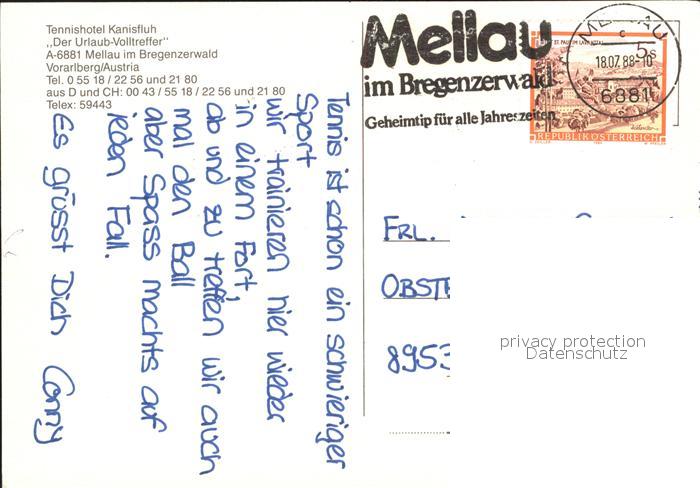 Tennishotel Kanisfluh
„Der Urlaub-Volltreffer"
A-6881 Mellau im Bregenzerwald
Vorarlberg/Austria
Tel. 0 55 18 / 22 56 und 21 80
aus D und CH: 00 43 / 55 18 / 22 56 und 21 80
Telex: 59443
Tennis ist schon ein schwieriger
Sport
wir trainieren hier wieder
in einem Fort,
ab und zu treffen wir auch
mal den Ball
aber Spass machts auf
jeden Fall.
Es grüsst Dich Conny
Mellau
im Bregenzerwald
Geheimtip für alle Jahreszeiten
MELLAU
c
18.07.88-10
6881
5s
REPUBLIK ÖSTERREICH
FRL.
OBSTE
8953
privacy protection
Datenschutz